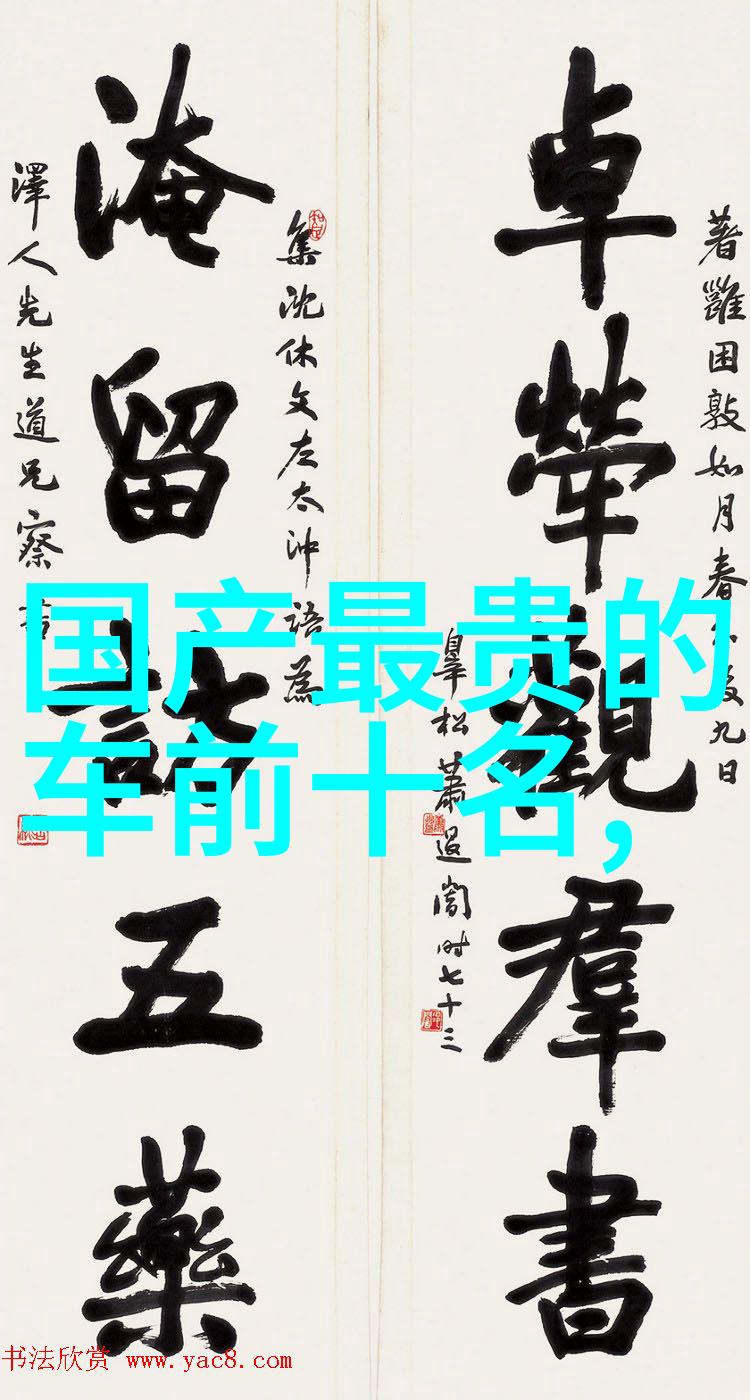 著雝困敦如月春九日
卓犖觀羣書
皐松蕭退闇时七十三
集沈休文左太沖語為
淹留訪五藥
澤人先生道兄察書
国产最贵的
车前十名,
书法欣赏 www.yac8.com